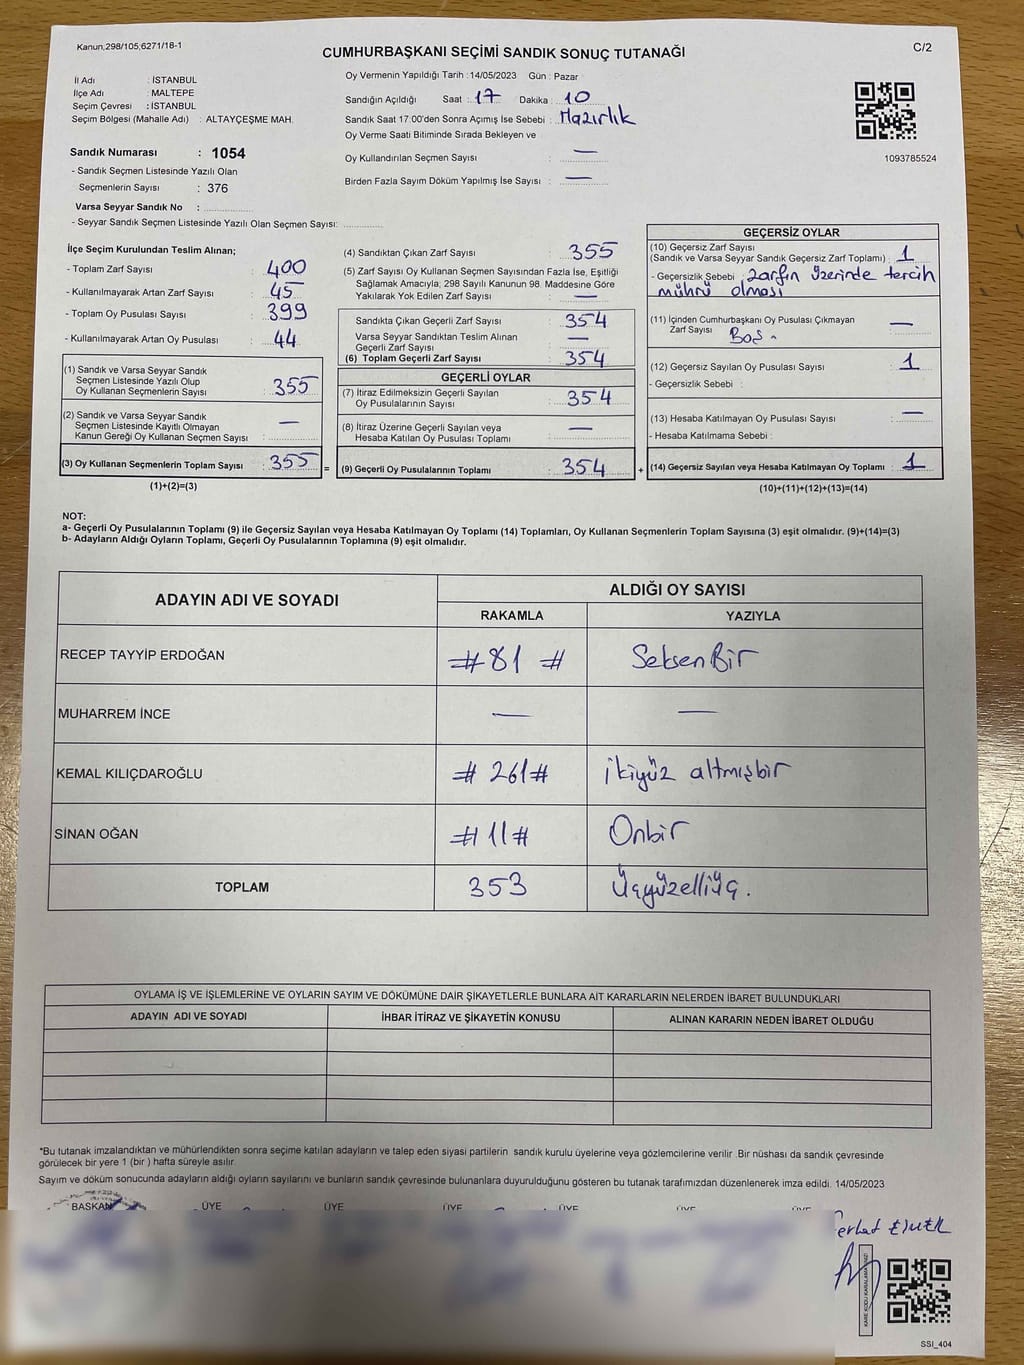 Kanun,298/105;6271/18-1
CUMHURBAŞKANI SEÇİMİ SANDIK SONUÇ TUTANAĞI
C/2
İl Adı : İSTANBUL
İlçe Adı : MALTEPE
Seçim Çevresi : İSTANBUL
Seçim Bölgesi (Mahalle Adı) : ALTAYÇEŞME MAH.
Sandık Numarası : 1054
- Sandık Seçmen Listesinde Yazılı Olan
Seçmenlerin Sayısı : 376
Varsa Seyyar Sandık No :
- Seyyar Sandık Seçmen Listesinde Yazılı Olan Seçmen Sayısı:
Oy Vermenin Yapıldığı Tarih : 14/05/2023 Gün : Pazar
Sandığın Açıldığı Saat : 17 Dakika : 10
Sandık Saat 17:00'den Sonra Açımış İse Sebebi : Hazırlık
Oy Verme Saati Bitiminde Sırada Bekleyen ve
Oy Kullandırılan Seçmen Sayısı : —
Birden Fazla Sayım Döküm Yapılmış İse Sayısı : —
1093785524
İlçe Seçim Kurulundan Teslim Alınan;
- Toplam Zarf Sayısı : 400
- Kullanılmayarak Artan Zarf Sayısı : 45
- Toplam Oy Pusulası Sayısı : 399
- Kullanılmayarak Artan Oy Pusulası : 44
(1) Sandık ve Varsa Seyyar Sandık
Seçmen Listesinde Yazılı Olup
Oy Kullanan Seçmenlerin Sayısı : 355
(2) Sandık ve Varsa Seyyar Sandık
Seçmen Listesinde Kayıtlı Olmayan
Kanun Gereği Oy Kullanan Seçmen Sayısı : —
(3) Oy Kullanan Seçmenlerin Toplam Sayısı : 355 =
(1)+(2)=(3)
(4) Sandıktan Çıkan Zarf Sayısı : 355
(5) Zarf Sayısı Oy Kullanan Seçmen Sayısından Fazla İse, Eşitliği
Sağlamak Amacıyla; 298 Sayılı Kanunun 98. Maddesine Göre
Yakılarak Yok Edilen Zarf Sayısı : —
Sandıkta Çıkan Geçerli Zarf Sayısı : 354
Varsa Seyyar Sandıktan Teslim Alınan
Geçerli Zarf Sayısı : —
(6) Toplam Geçerli Zarf Sayısı : 354
GEÇERLİ OYLAR
(7) İtiraz Edilmeksizin Geçerli Sayılan
Oy Pusulalarının Sayısı : 354
(8) İtiraz Üzerine Geçerli Sayılan veya
Hesaba Katılan Oy Pusulası Toplamı : —
(9) Geçerli Oy Pusulalarının Toplamı : 354 +
GEÇERSİZ OYLAR
(10) Geçersiz Zarf Sayısı
(Sandık ve Varsa Seyyar Sandık Geçersiz Zarf Toplamı) : 1
- Geçersizlik Sebebi : Zarfın üzerinde tercih
mührü olması
(11) İçinden Cumhurbaşkanı Oy Pusulası Çıkmayan
Zarf Sayısı : —
Boş -
(12) Geçersiz Sayılan Oy Pusulası Sayısı : 1
- Geçersizlik Sebebi :
(13) Hesaba Katılmayan Oy Pusulası Sayısı : —
- Hesaba Katılmama Sebebi :
(14) Geçersiz Sayılan veya Hesaba Katılmayan Oy Toplamı : 1
(10)+(11)+(12)+(13)=(14)
NOT:
a- Geçerli Oy Pusulalarının Toplamı (9) ile Geçersiz Sayılan veya Hesaba Katılmayan Oy Toplamı (14) Toplamları, Oy Kullanan Seçmenlerin Toplam Sayısına (3) eşit olmalıdır. (9)+(14)=(3)
b- Adayların Aldığı Oyların Toplamı, Geçerli Oy Pusulalarının Toplamına (9) eşit olmalıdır.
ADAYIN ADI VE SOYADI
ALDIĞI OY SAYISI
RAKAMLA YAZIYLA
RECEP TAYYİP ERDOĞAN #81# SeksenBir
MUHARREM İNCE — —
KEMAL KILIÇDAROĞLU #261# ikiyüz altmışbir
SİNAN OĞAN #11# Onbir
TOPLAM 353 Üçyüzelliüç.
OYLAMA İŞ VE İŞLEMLERİNE VE OYLARIN SAYIM VE DÖKÜMÜNE DAİR ŞİKAYETLERLE BUNLARA AİT KARARLARIN NELERDEN İBARET BULUNDUKLARI
ADAYIN ADI VE SOYADI İHBAR İTİRAZ VE ŞİKAYETİN KONUSU ALINAN KARARIN NEDEN İBARET OLDUĞU
*Bu tutanak imzalandıktan ve mühürlendikten sonra seçime katılan adayların ve talep eden siyasi partilerin sandık kurulu üyelerine veya gözlemcilerine verilir .Bir nüshası da sandık çevresinde
görülecek bir yere 1 (bir ) hafta süreyle asılır.
Sayım ve döküm sonucunda adayların aldığı oyların sayılarını ve bunların sandık çevresinde bulunanlara duyurulduğunu gösteren bu tutanak tarafımızdan düzenlenerek imza edildi. 14/05/2023
BAŞKAN ÜYE ÜYE ÜYE ÜYE ÜYE ÜYE
KARE KODU KARALAMAYINIZ!
SSI_404